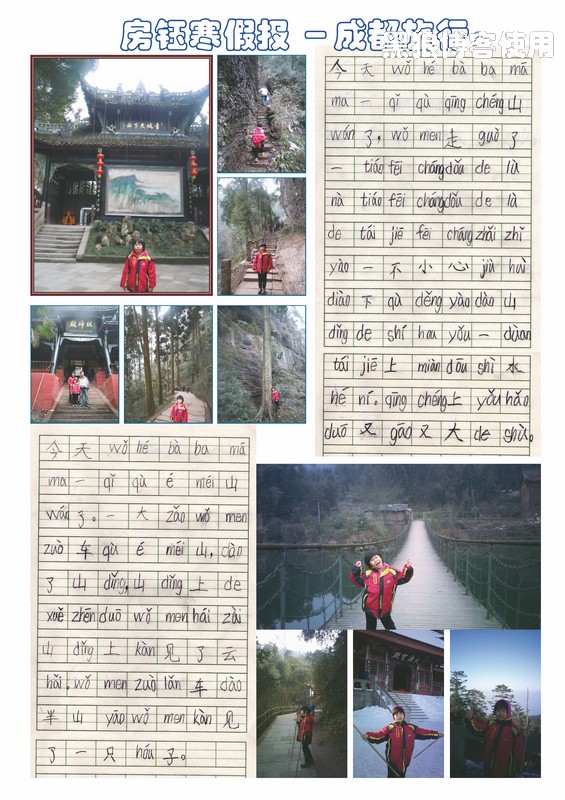 房钰寒假报 - 成都旅行
黑狼博客使用
今天wǒ hé bà ba mā
ma 一 qǐ qù qīng chéng 山
wán 了, wǒ men 走 guò 了
一 tiáo fēi cháng dǒu de là
nà tiáo fēi cháng dǒu de là
de tái jiē fēi cháng zhǎi zhǐ
yào 一 不 小 心 jiù huì
diào 下 qù děng yào dào 山
dǐng de shí hou yǒu 一 duàn
tái jiē 上 miàn dōu shì 水
hé ní. qīng chéng 上 yǒu hǎo
duō 又 gāo 又 大 de shù。
今天 wǒ hé bà ba mā
ma 一 qǐ qù é méi 山
wán 了。一 大 zǎo wǒ men
zuò 车 qù é méi 山, dào
了 山 dǐng, 山 dǐng 上 de
xuě zhēn duō wǒ men hái zài
山 dǐng 上 kàn 见 了 云
hǎi。wǒ men zuò lǎn 车 dào
半 山 yāo wǒ men kàn 见
了 一 只 hóu 子。